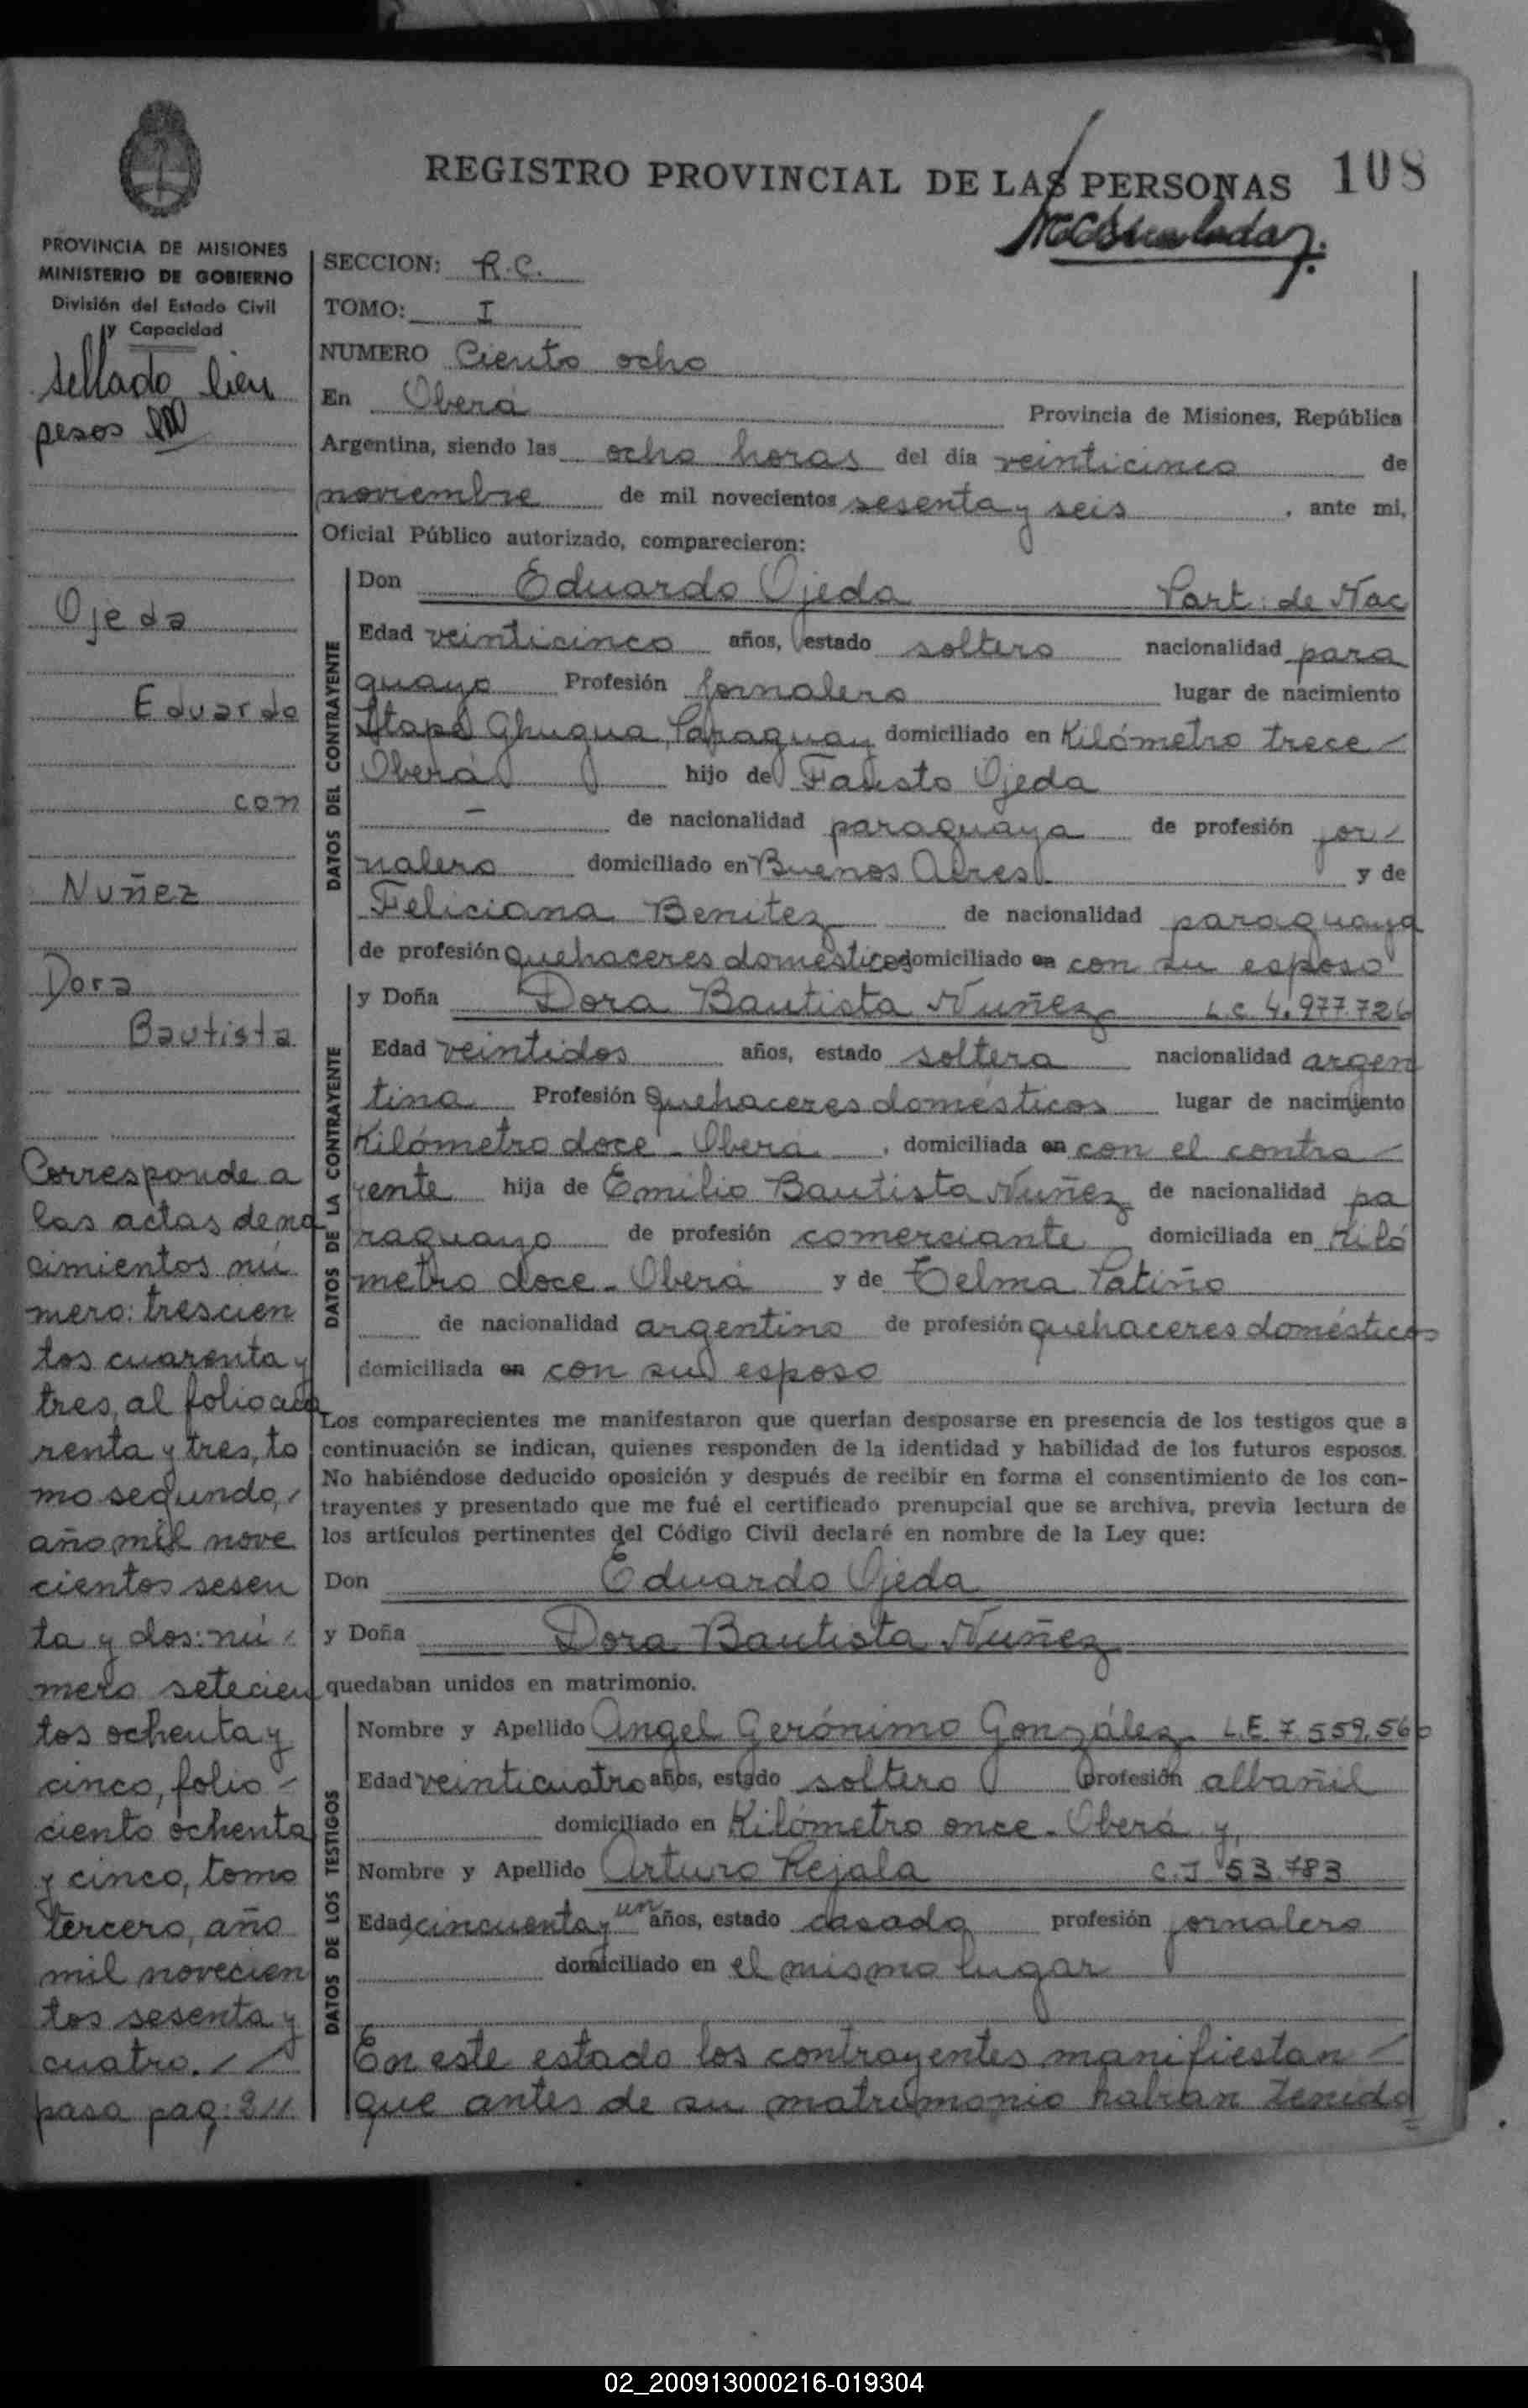 REGISTRO PROVINCIAL DE LAS PERSONAS 108
PROVINCIA DE MISIONES
MINISTERIO DE GOBIERNO
División del Estado Civil
y Capacidad
Sellado
pesos
Ojeda
Eduardo
con
Nuñez
Dora
Bautista
Corresponde a
las actas de na
cimientos nú
mero: trescien
tos cuarenta y
tres, al folio cua
renta y tres, to
mo segundo,
año mil nove
cientos sesen
ta y dos: nú
mero setecien
tos ochenta y
cinco, folio
ciento ochenta
y cinco, tomo
tercero, año
mil novecien
tos sesenta y
cuatro.
pasa pag:
SECCION: R.C.
TOMO: I
NUMERO Ciento ocho
En Oberá Provincia de Misiones, República
Argentina, siendo las ocho horas del día veinticinco de
noviembre de mil novecientos sesenta y seis, ante mi,
Oficial Público autorizado, comparecieron:
DATOS DEL CONTRAYENTE
Don Eduardo Ojeda Part: de Nac
Edad veinticinco años, estado soltero nacionalidad para
guayo Profesión jornalero lugar de nacimiento
Paraguay domiciliado en Kilómetro trece
Oberá hijo de Fausto Ojeda
— de nacionalidad paraguaya de profesión jor
nalero domiciliado en Buenos Aires y de
Feliciana Benitez de nacionalidad paraguaya
de profesión quehaceres domésticos domiciliado en con su esposo
DATOS DE LA CONTRAYENTE
y Doña Dora Bautista Nuñez L.C. 4.977.726
Edad veintidos años, estado soltera nacionalidad argen
tina Profesión Quehaceres domésticos lugar de nacimiento
Kilómetro doce - Oberá, domiciliada en con el contra-
yente hija de Emilio Bautista Nuñez de nacionalidad pa
raguayo de profesión comerciante domiciliada en Kiló
metro doce - Oberá y de Telma Patiño
de nacionalidad argentina de profesión quehaceres domésticos
domiciliada en con su esposo
Los comparecientes me manifestaron que querían desposarse en presencia de los testigos que a
continuación se indican, quienes responden de la identidad y habilidad de los futuros esposos.
No habiéndose deducido oposición y después de recibir en forma el consentimiento de los con-
trayentes y presentado que me fué el certificado prenupcial que se archiva, previa lectura de
los artículos pertinentes del Código Civil declaré en nombre de la Ley que:
Don Eduardo Ojeda
y Doña Dora Bautista Nuñez
quedaban unidos en matrimonio.
DATOS DE LOS TESTIGOS
Nombre y Apellido Angel Gerónimo González L.E. 7.559.560
Edad veinticuatro años, estado soltero profesión albañil
domiciliado en Kilómetro once - Oberá y,
Nombre y Apellido Arturo Rejala C.I 53.783
Edad cincuenta y un años, estado casado profesión jornalero
domiciliado en el mismo lugar
En este estado los contrayentes manifiestan
que antes de su matrimonio habían tenido
02_200913000216-019304